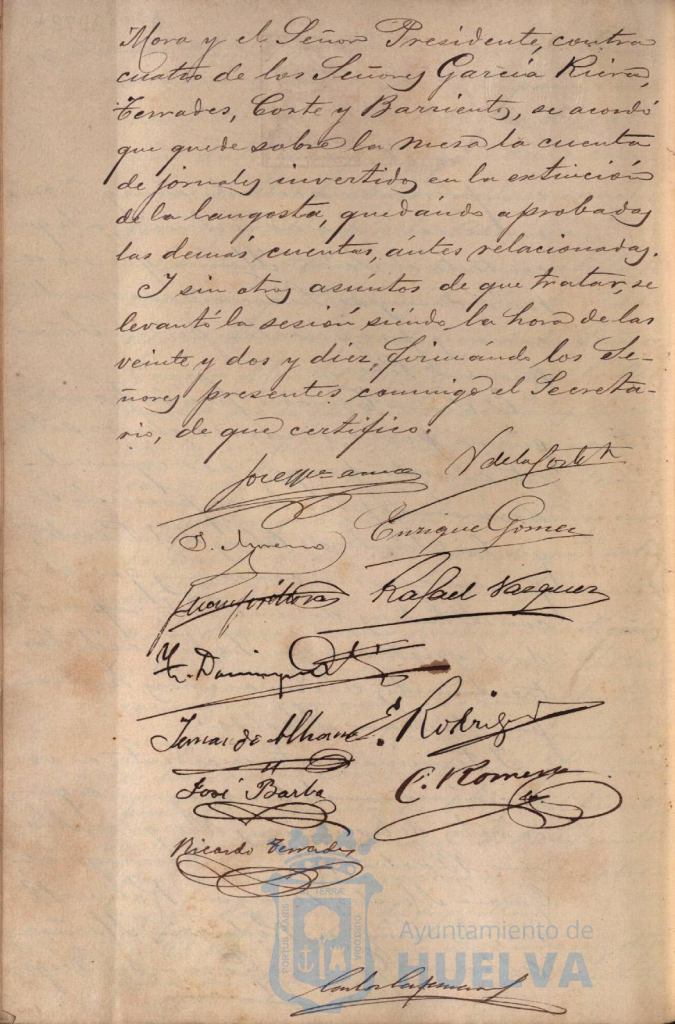 Mora y el Señor Presidente, contra
cuatro de los Señores García Riera,
Terrades, Corte y Barrientos, se acordó
que quede sobre la mesa la cuenta
de jornales invertidos en la extinción
de la langosta, quedándo aprobadas
las demás cuentas, ántes relacionadas.
I sin otros asúntos de que tratar, se
levantó la sesión siéndo la hora de las
veinte y dos y diez, firmándo los Se-
ñores presentes conmigo el Secreta-
rio, de que certifico.
V de la Corte
Enrique Gomez
Rafael Vazquez
E. Rodrig
José Barba
C. Romero
Ricardo Terrades
PORTUS MARIS
ET TERRAE
CUSTODIA
Ayuntamiento de
HUELVA